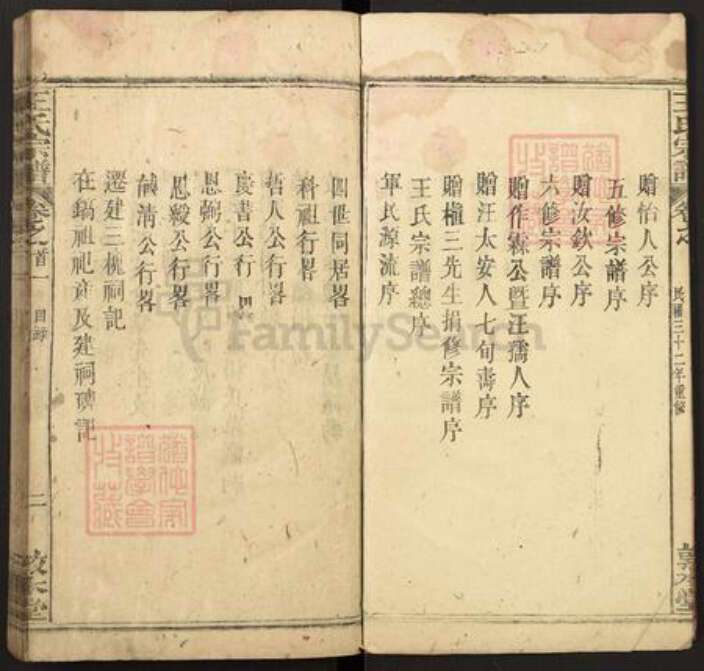 王氏宗譜
卷之首
民國三十二年重修
敦本堂
贈怡人公序
五修宗譜序
贈汝欽公序
六修宗譜序
贈作霖公暨汪孺人序
贈汪太安人七旬壽序
贈槐三先生捐修宗譜序
王氏宗譜總序
軍民源流序
四世同居畧
科祖行畧
哲人公行畧
慶書公行畧
恩綯公行畧
恩綬公行畧
公行畧
遷建三槐祠記
在鎬祖祀產及建祠碑記
王氏宗譜
卷之首一
目錄
二
敦本堂
FamilySearch